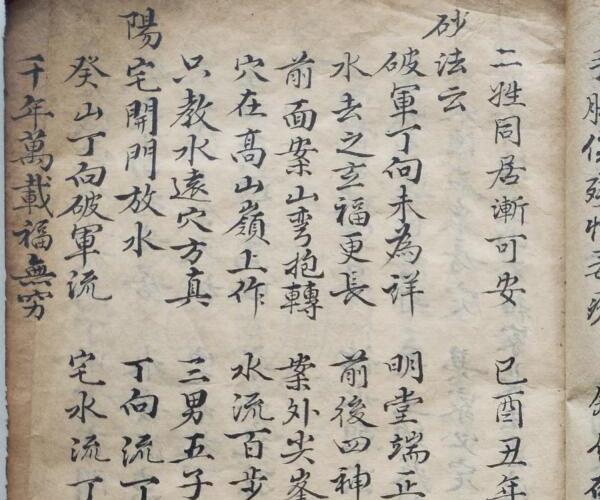 二姓同居漸可安 巳酉丑年
砂法云
破軍丁向未為詳 明堂端正
水去之玄福更長 前後四神
前面案山弯抱轉 案外尖峯
穴在高山嶺上作 水流百步
只教水遠穴方真 三男五子
陽宅開門放水 丁向流丁
癸山丁向破軍流 宅水流丁
千年萬載福無穷